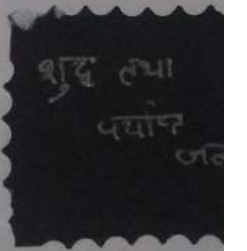 शुद्ध तथा
पर्याप्त
जल